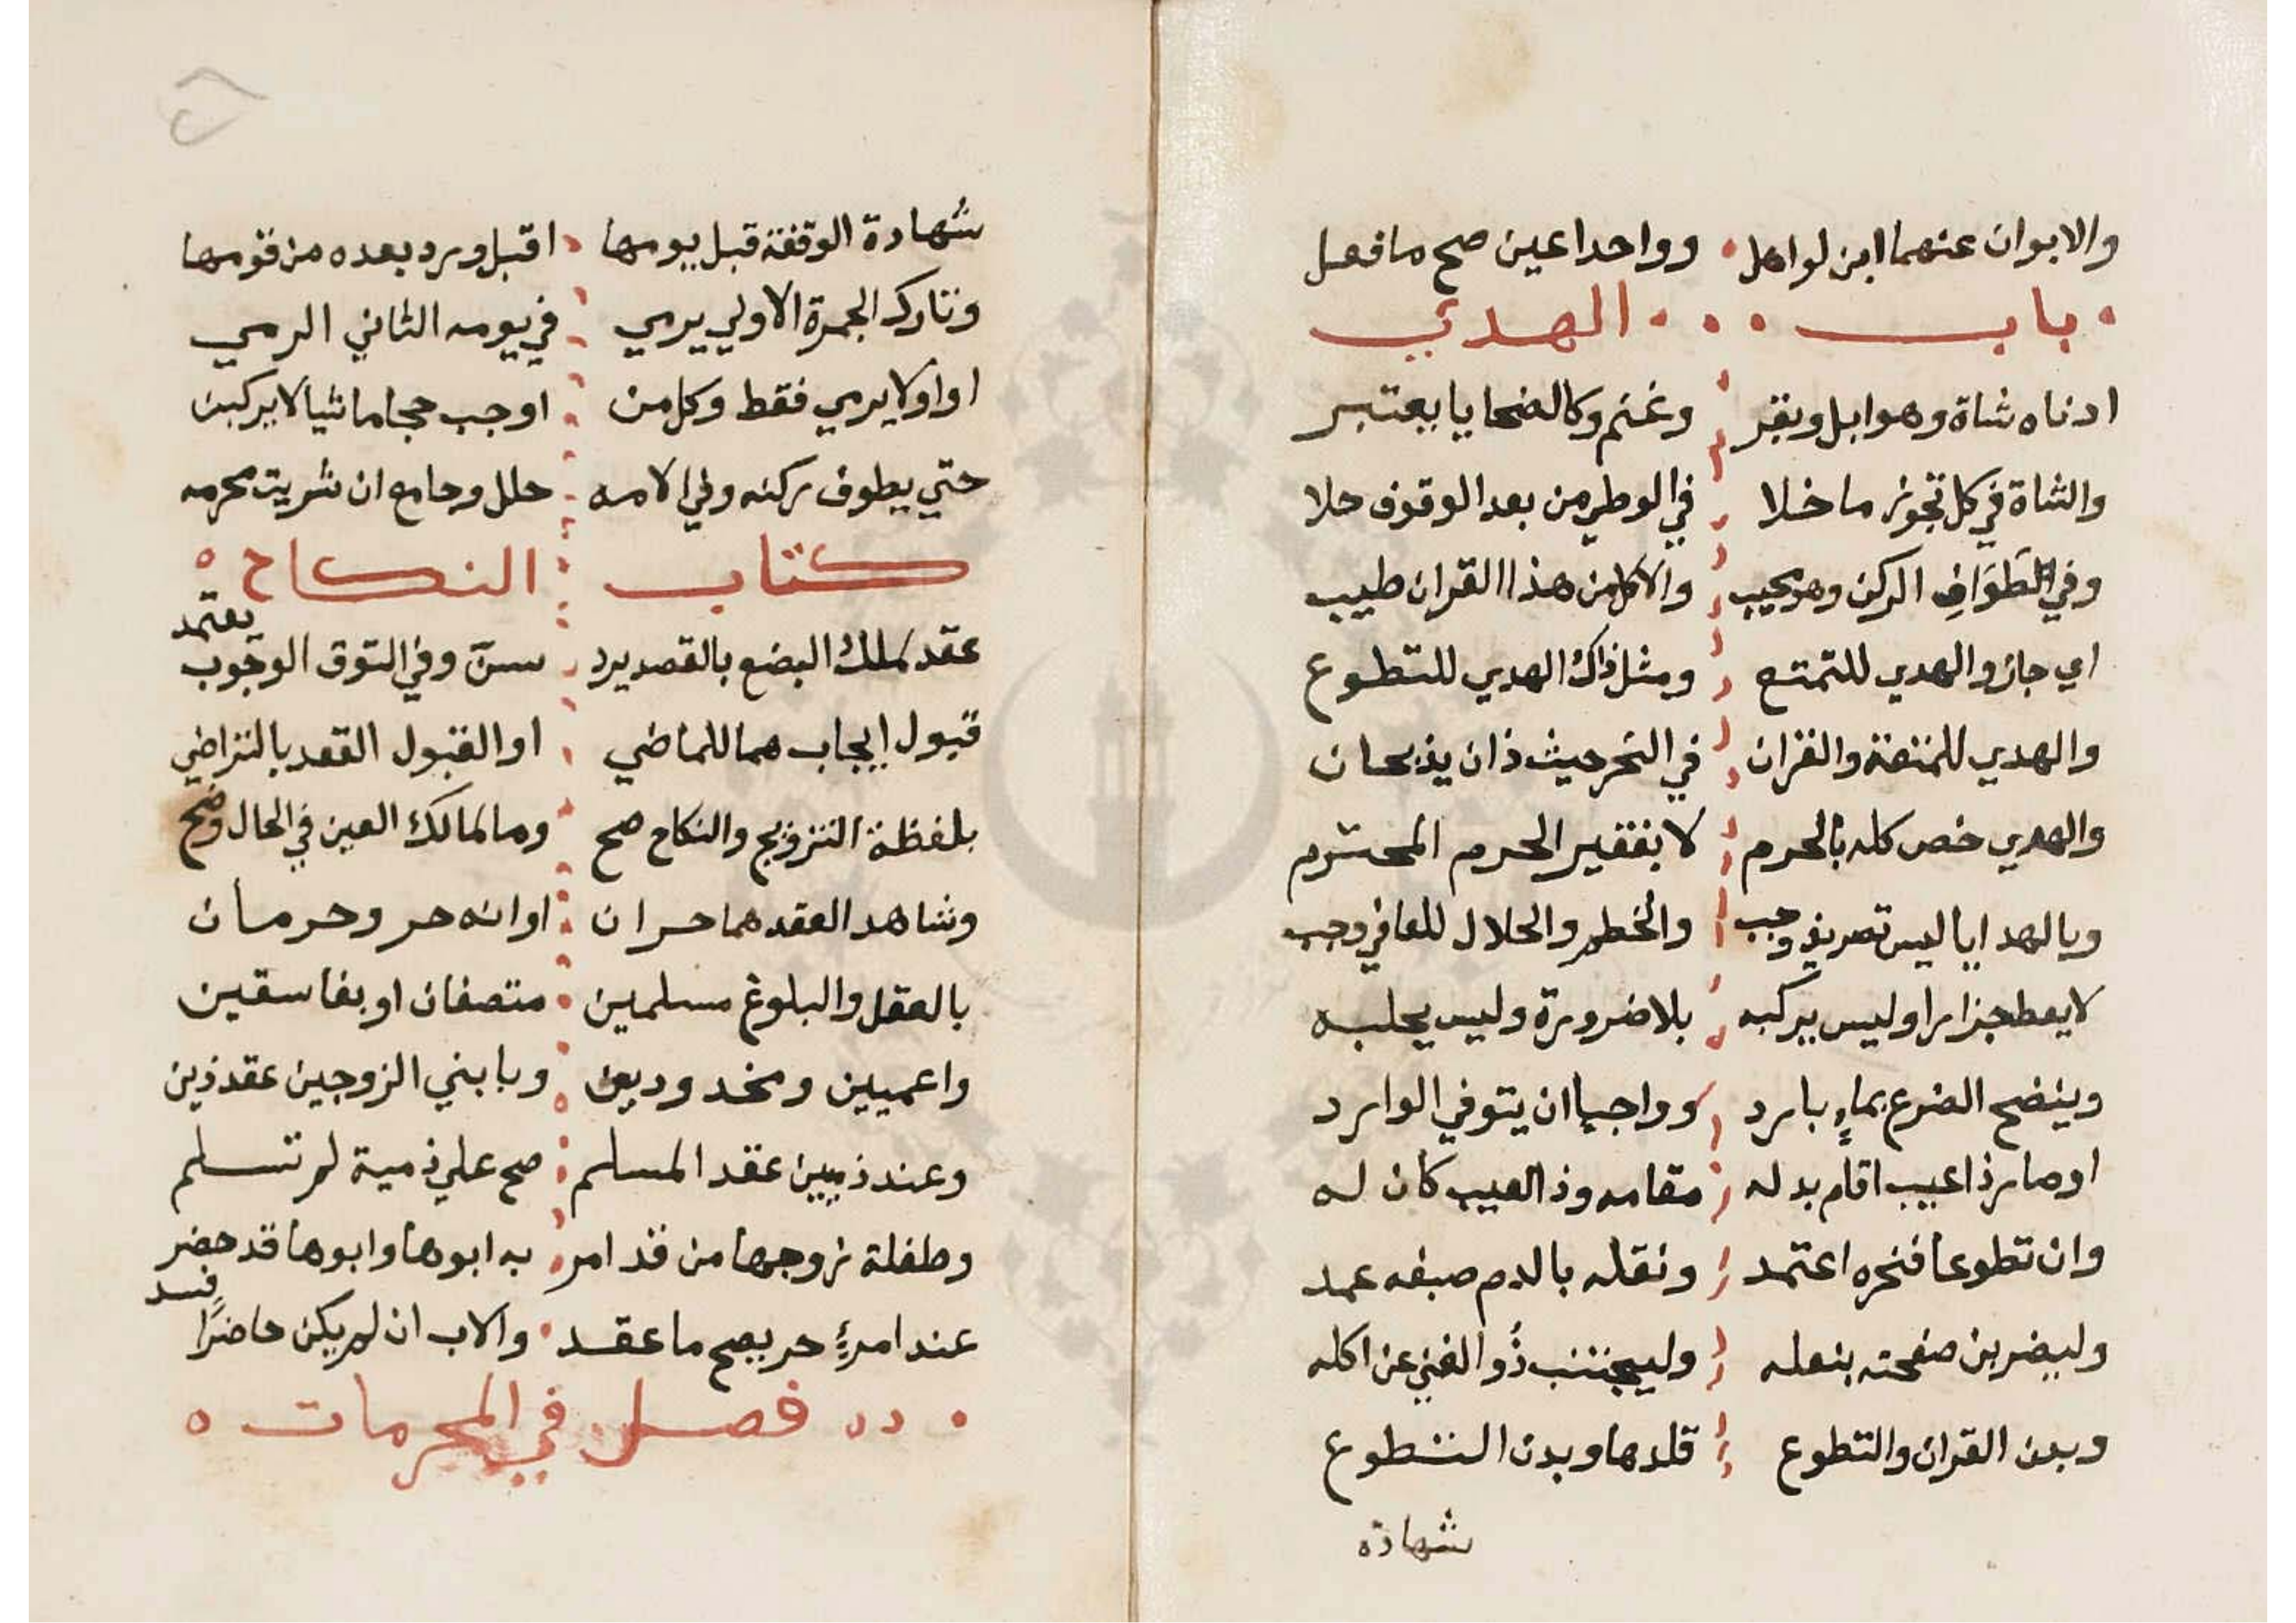 والابوان عنهما ابن لو اهل ووا احدا عين صح ما فعل
باب الهدي
ادناه شاة وهو ابل وبقر وغنم وكالضحايا يعتبر
والشاة في كل تجوز ما خلا في الوطي من بعد الوقوف حلا
وفي الطَوَافِ الركن وهو يجيب والاكل من هذا القران طيب
اي جاز والهدي للتمتع ومثل ذاك الهدي للتطوع
والهدي للمتعة والقران في النحر حيث ذان يذبحان
والهدي خص كله بالحرم لا بفقير الحرم المحترم
وبالهدايا ليس تصريف وجب والخطم والجلال للعافي وجب
لا يعط جزارا وليس يركبه بلا ضرورة وليس يحلبه
وينضح الضرع بماءٍ بارد وواجبا ان يتوفي الوارد
او صار ذا عيب اقام بدله مقامه وذا العيب كان له
وان تطوعا فنحره اعتمد ونعله بالدم صبغه عمد
وليضربن صفحته بنعله وليجتنب ذُو الغني عن اكله
وبدن القران والتطوع قلدها وبدن التطوع
شهادة
شهادة الوقفة قبل يومها اقبل ورد بعده من قومها
وتارك الجمرة الاولي يرمي في يومه الثاني الرمي
او اولا يرمي فقط وكل من اوجب حجا ماشيا لا يركبن
حتي يطوف ركنه وفي الامه حلل وجامع ان شريت محرمه
كتاب النكاح
عقد لملك البضع بالقصد يرد سنّ وفي التوق الوجوب يعتمد
قبول ايجاب هما للماضي او القبول العقد بالتراضي
بلفظة التزويج والنكاح صح وما لمالك العين في الحال وضح
وشاهد العقد هما حران او انه حر وحرمان
بالعقل والبلوغ مسلمين متصفان او بفاسقين
واعميين ومحدودين وبابني الزوجين عقد ذين
وعند ذميين عقد المسلم صح علي ذمية لم تسلم
وطفلة زوجها من قد امر به ابوها وابوها قد حضر
عند امرءٍ حر يصح ما عقد والاب ان لم يكن حاضرًا فسد
فصل في المحرمات